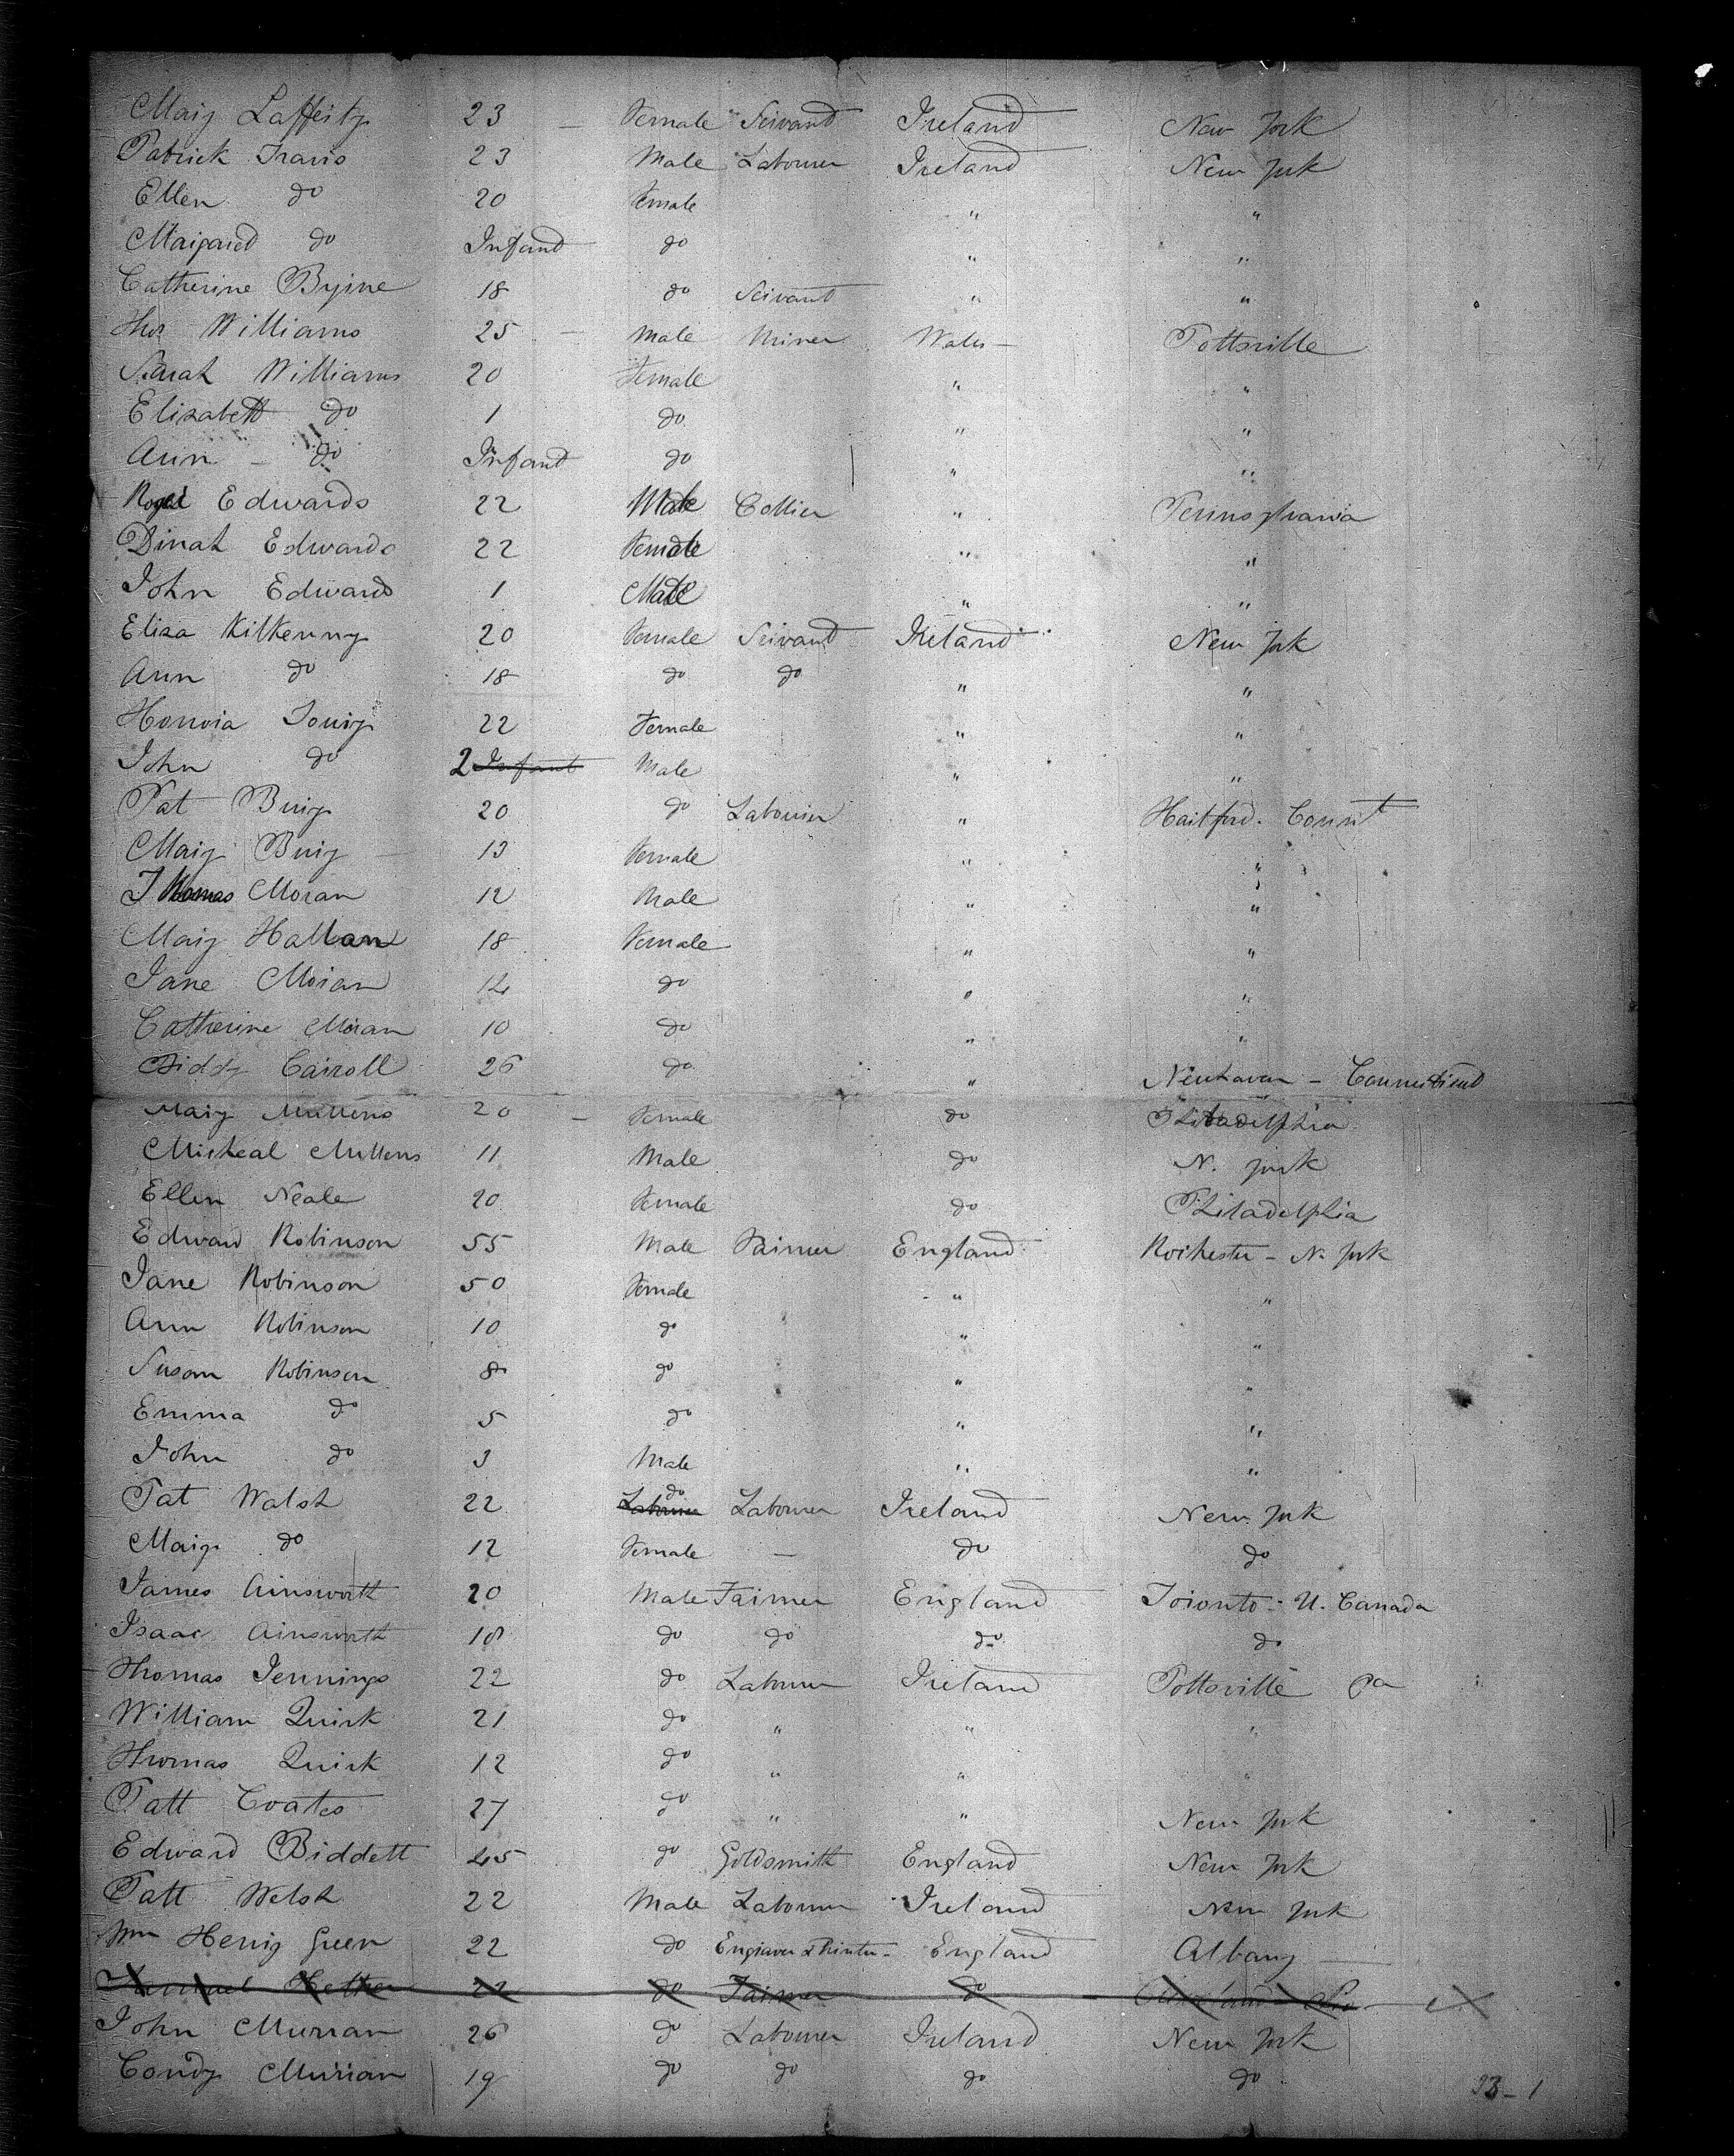 Mary Lafferty 23 — Female Servant Ireland New York
Patrick Travis 23 Male Labourer Ireland New York
Ellen do 20 Female " "
Margaret do Infant do " "
Catherine Byrne 18 do Servant " "
Thos Williams 25 — Male Miner Wales — Pottsville
Sarah Williams 20 Female " "
Elizabeth do 1 do " "
Ann — do Infant do " "
Edwards 22 Male Collier " Pennsylvania
Dinah Edwards 22 Female " "
John Edwards 1 Male " "
Eliza Kilkenny 20 Female Servant Ireland New York
Ann do 18 do do " "
Honora 22 Female " "
John do 2 Infant Male " "
Pat 20 do Labourer " Hartford. Connt
Mary — 13 Female " "
Thomas Moran 12 Male " "
Mary Hallan 18 Female " "
Jane Moran 14 do " "
Catherine Moran 10 do " "
Biddy Carroll 26 do " Newhaven — Connecticut
Mary Mullens 20 — Female do Philadelphia
Micheal Mullens 11 Male do N. York
Ellen Neale 20 Female do Philadelphia
Edward Robinson 55 Male Farmer England Rochester — N. York
Jane Robinson 50 Female " "
Ann Robinson 10 do " "
Susan Robinson 8 do " "
Emma do 5 do " "
John do 3 Male " "
Pat Walsh 22 Labourer do Labourer Ireland New York
Mary do 12 Female — do do
James Ainsworth 20 Male Farmer England Toronto - U. Canada
Isaac Ainsworth 18 do do do do
Thomas Jennings 22 do Labourer Ireland Pottsville Pa
William Quirk 21 do " " "
Thomas Quirk 12 do " " "
Patt Coates 27 do " " New York
Edward Biddett 45 do Goldsmith England New York
Patt Welsh 22 Male Labourer Ireland New York
Wm Henry Green 22 do Engraver & Printer — England Albany —
22 do Farmer do
John Murran 26 do Labourer Ireland New York
Condy Murran 19 do do do do
33 — 1